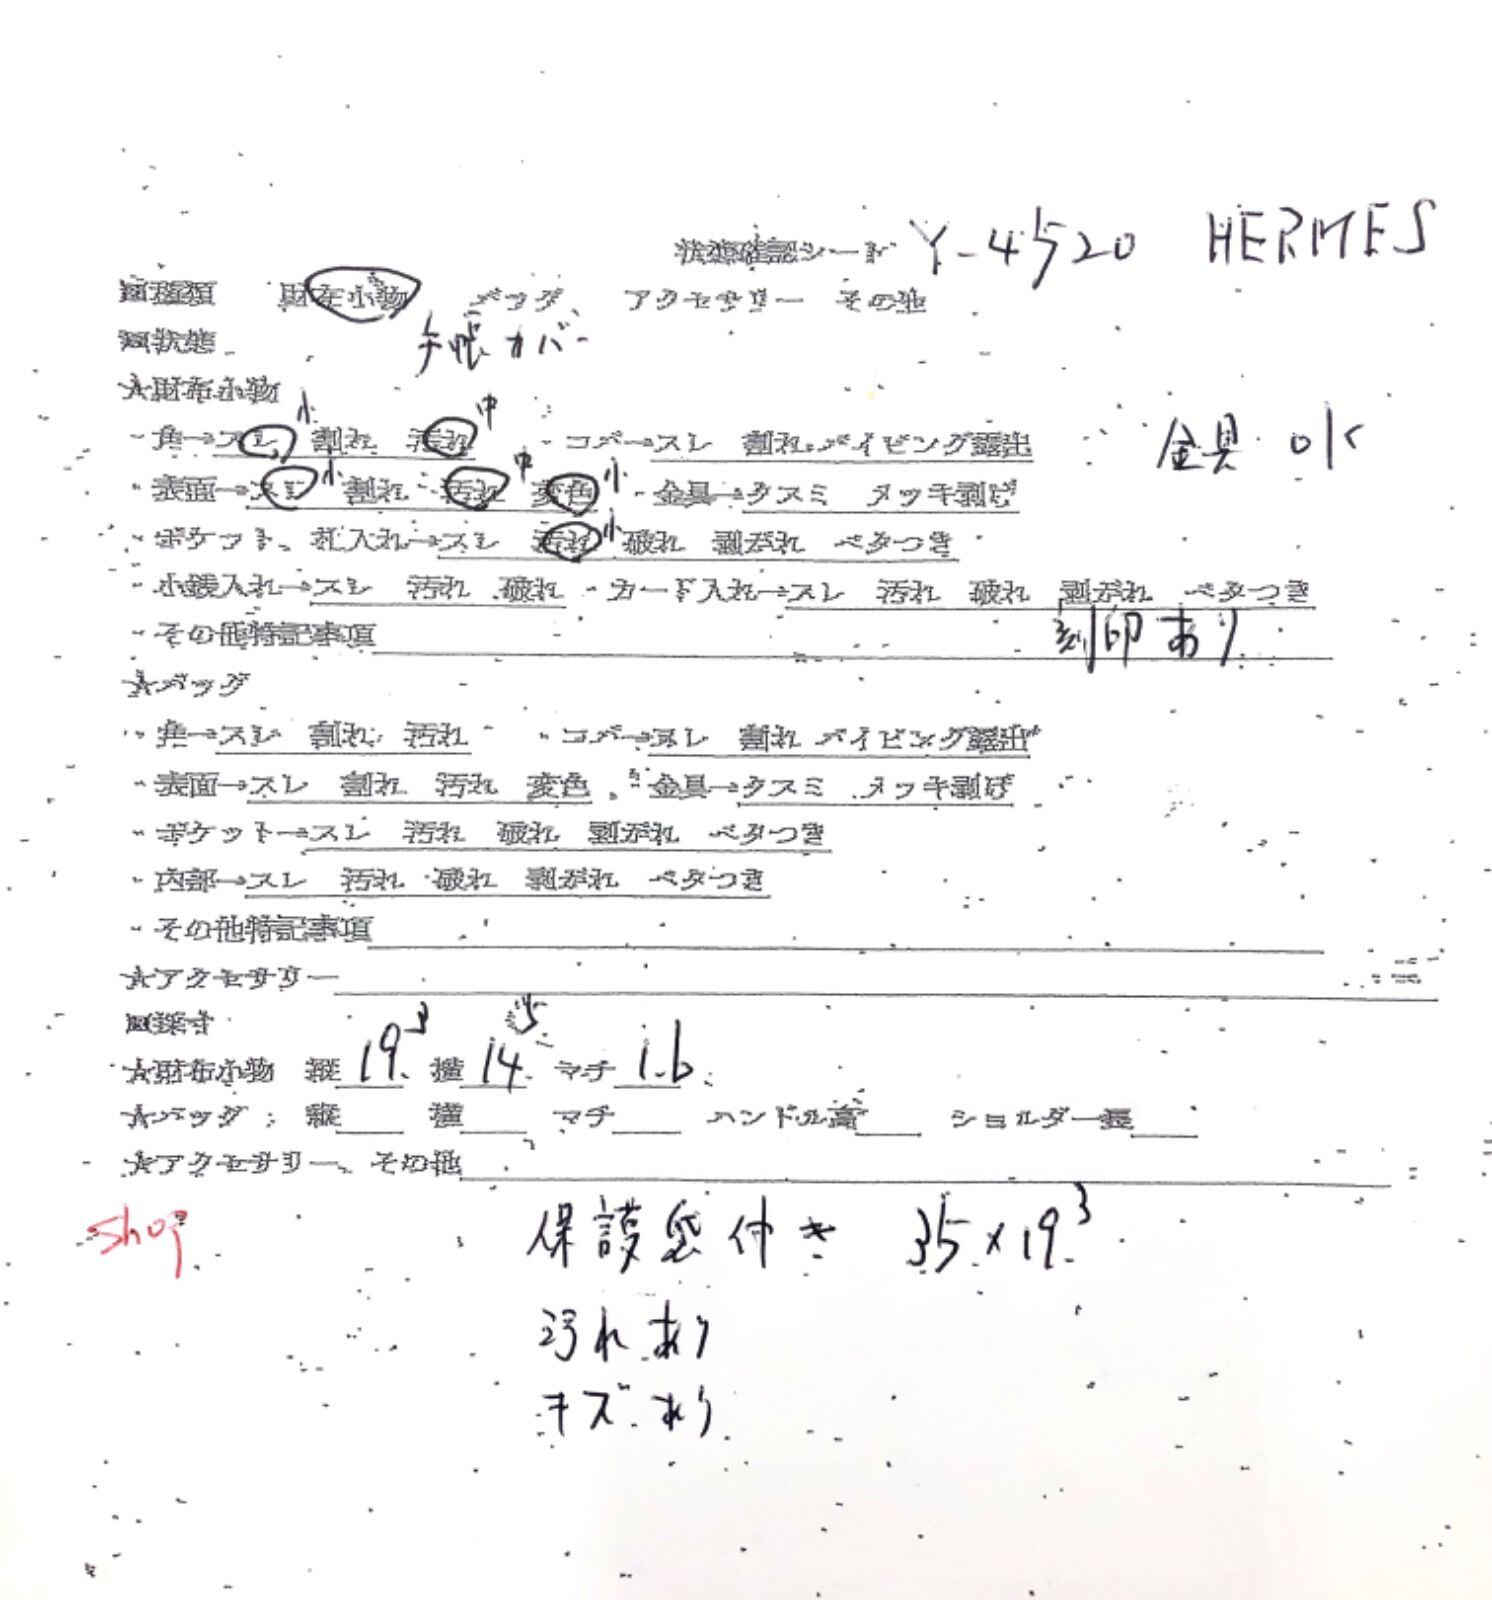 状態確認シート Y-4520 HERMES
□種類 財布小物 バッグ、 アクセサリー その他
□状態 手帳カバー
★財布小物
・角→スレ 小 割れ 汚れ 中 ・コバ→スレ 割れ パイピング露出 金具 OK
・表面→スレ 小 割れ 汚れ 中 変色 小 ・金具→クスミ メッキ剥げ
・ポケット、札入れ→スレ 汚れ 小 破れ 剥がれ ベタつき
・小銭入れ→スレ 汚れ 破れ ・カード入れ→スレ 汚れ 破れ 剥がれ ベタつき
・その他特記事項 刻印あり
★バッグ
・角→スレ 割れ 汚れ ・コバ→スレ 割れ パイピング露出
・表面→スレ 割れ 汚れ 変色 ・金具→クスミ メッキ剥げ
・ポケット→スレ 汚れ 破れ 剥がれ ベタつき
・内部→スレ 汚れ 破れ 剥がれ ベタつき
・その他特記事項
★アクセサリー
□採寸
★財布小物 縦 19.3 横 14.5 マチ 1.6
★バッグ 縦 横 マチ ハンドル高 ショルダー長
★アクセサリー、その他
shop 保護袋付き 35×19.3
汚れあり
キズあり